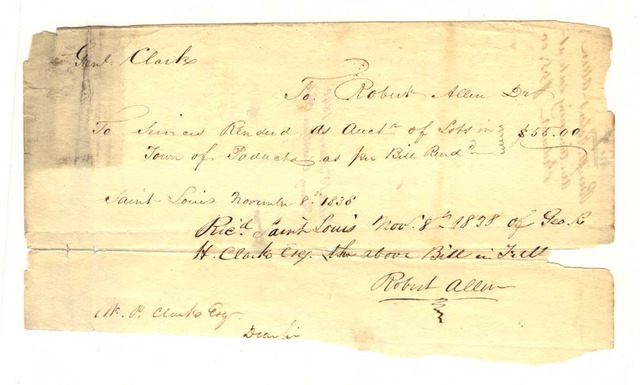 Genl. Clark
To Robert Allen Dr
To Services Renderd as Auctn of Lots in $55.00
Town of Paducha as per Bill Rendd
Saint Louis November 8th 1838
Recd Saint Louis Novr 8th 1838 of Geo. R
H. Clark Esq. the above Bill in Full
Robert Allen
W. P. Clark Esq
Dear Sir